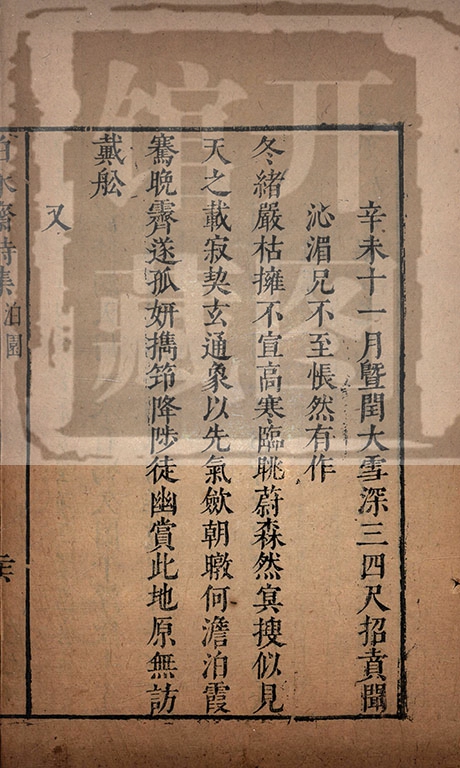 辛未十一月暨閏大雪深三四尺招賁聞
沁湄兄不至悵然有作
冬緒嚴枯擁不宣高寒臨眺蔚森然寘搜似見
天之載寂契玄通象以先氣斂朝暾何澹泊霞
騫晚霽遂孤妍撝筇降陟徒幽賞此地原無訪
戴舩
又
詩集
泊園